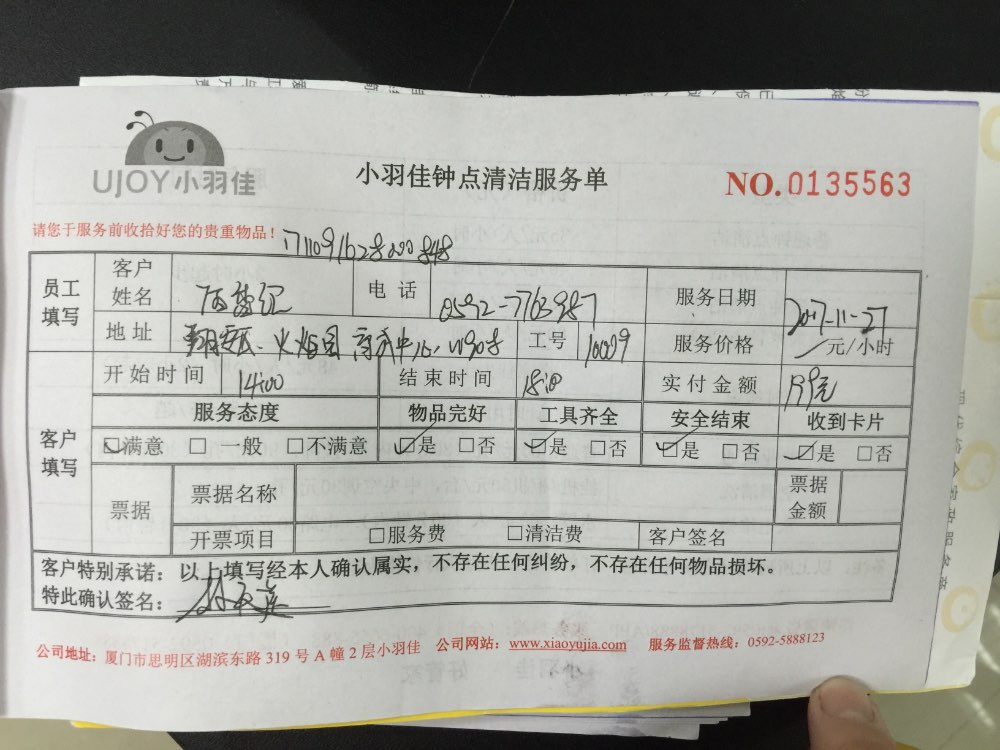 UJOY小羽佳
小羽佳钟点清洁服务单
NO.0135563
请您于服务前收拾好您的贵重物品!
员工填写 客户姓名 电话 0592-7763987 服务日期 2017-11-27
地址 工号 10009 服务价格 元/小时
客户填写 开始时间 14:00 结束时间 18:00 实付金额
服务态度 物品完好 工具齐全 安全结束 收到卡片
☑满意 □一般 □不满意 ☑是 □否 ☑是 □否 ☑是 □否 ☑是 □否
票据 票据名称 票据金额
开票项目 □服务费 □清洁费 客户签名
客户特别承诺:以上填写经本人确认属实,不存在任何纠纷,不存在任何物品损坏。
特此确认签名:
公司地址:厦门市思明区湖滨东路 319 号 A 幢 2 层小羽佳 公司网站:www.xiaoyujia.com 服务监督热线:0592-5888123